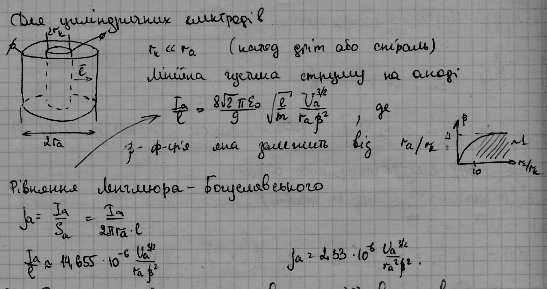 Для циліндричних електродів
2rк
rк << rа (катод дріт або спіраль)
лінійна густина струму на аноді
E
Iа/l = 8√2 π ε₀/9 √(e/m) Uа^3/2 / rа β² , де
2rа
β - ф-ція яка залежить від rа/rк
β
1
~1
10
rа/rк
Рівняння Ленгмюра - Богуславського
jа = Iа/Sа = Iа/2πrа·l
Iа/l ≈ 14,655 · 10^-6 Uа^3/2 / rа β²
jа = 2,33 · 10^-6 Uа^3/2 / rа² β² .